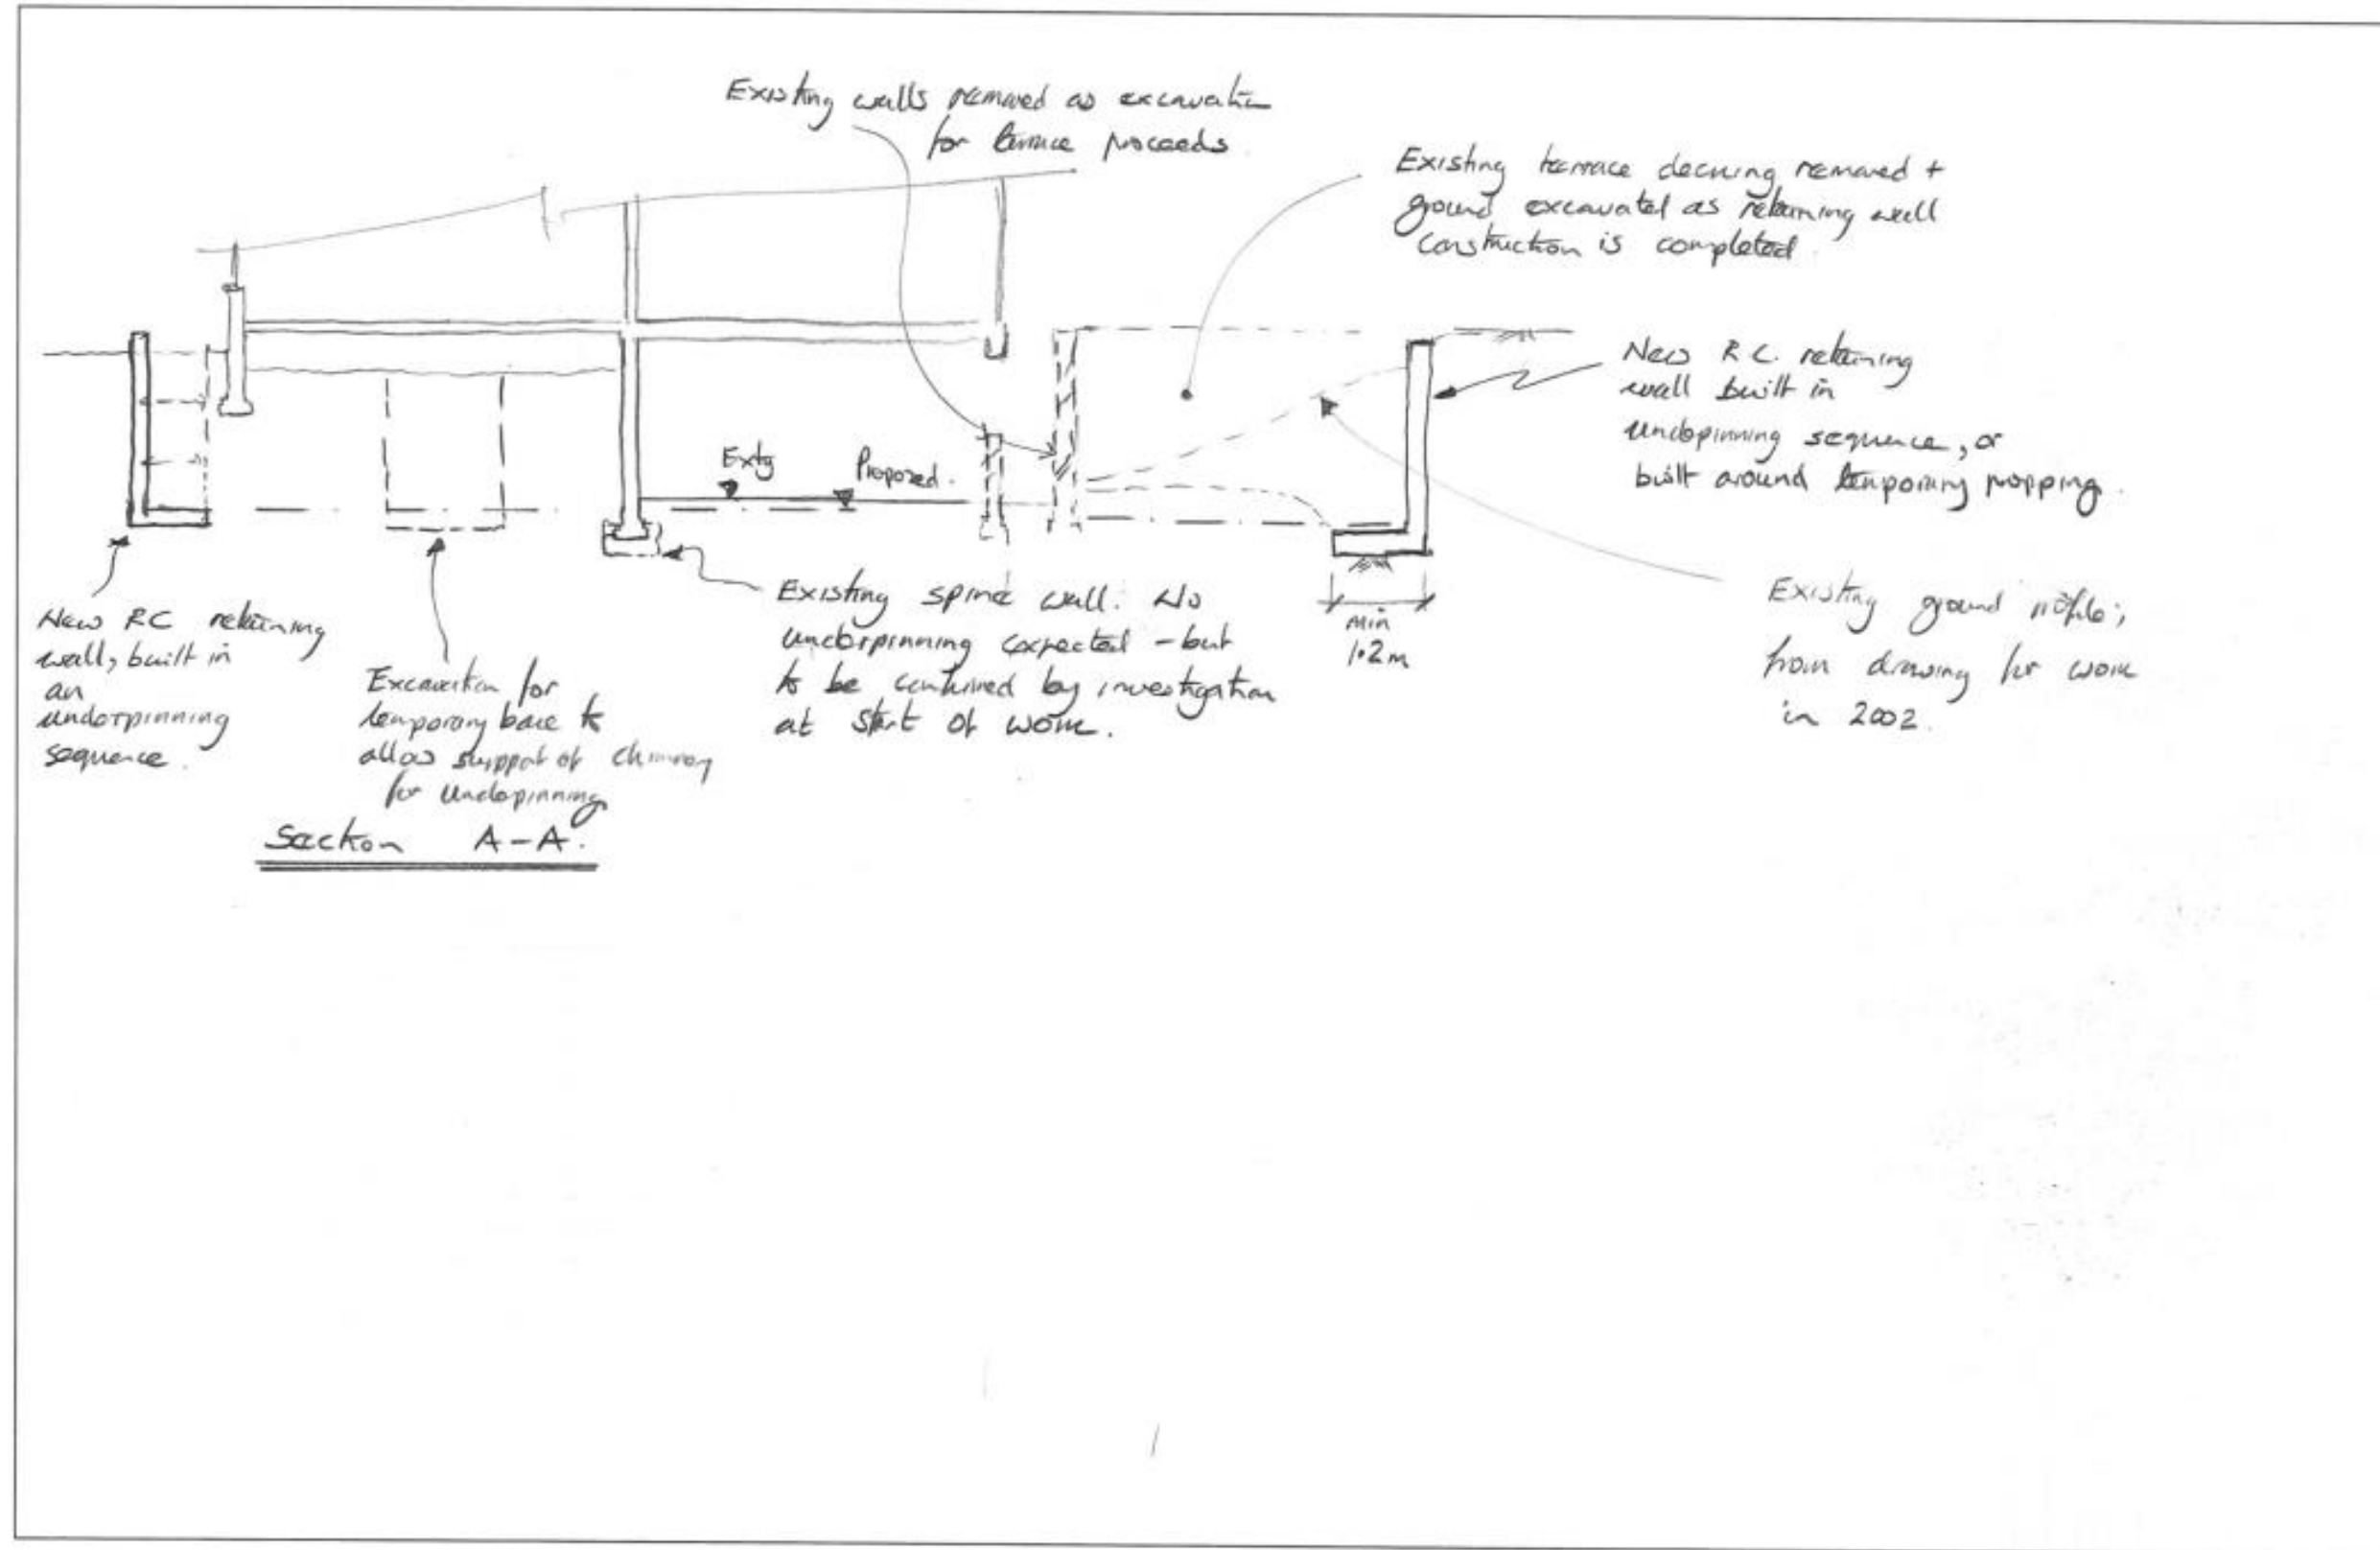 Existing walls removed as excavation
for terrace proceeds.
Existing terrace decking removed +
ground excavated as retaining wall
construction is completed.
New R.C. retaining
wall built in
underpinning sequence, or
built around temporary propping.
Extg
Proposed.
Existing ground profile;
from drawing for work
in 2002.
min
1.2m
Existing spine wall. No
underpinning expected - but
to be confirmed by investigation
at start of work.
New RC retaining
wall, built in
an
underpinning
sequence.
Excavation for
temporary base to
allow support of chimney
for underpinning
Section A-A.